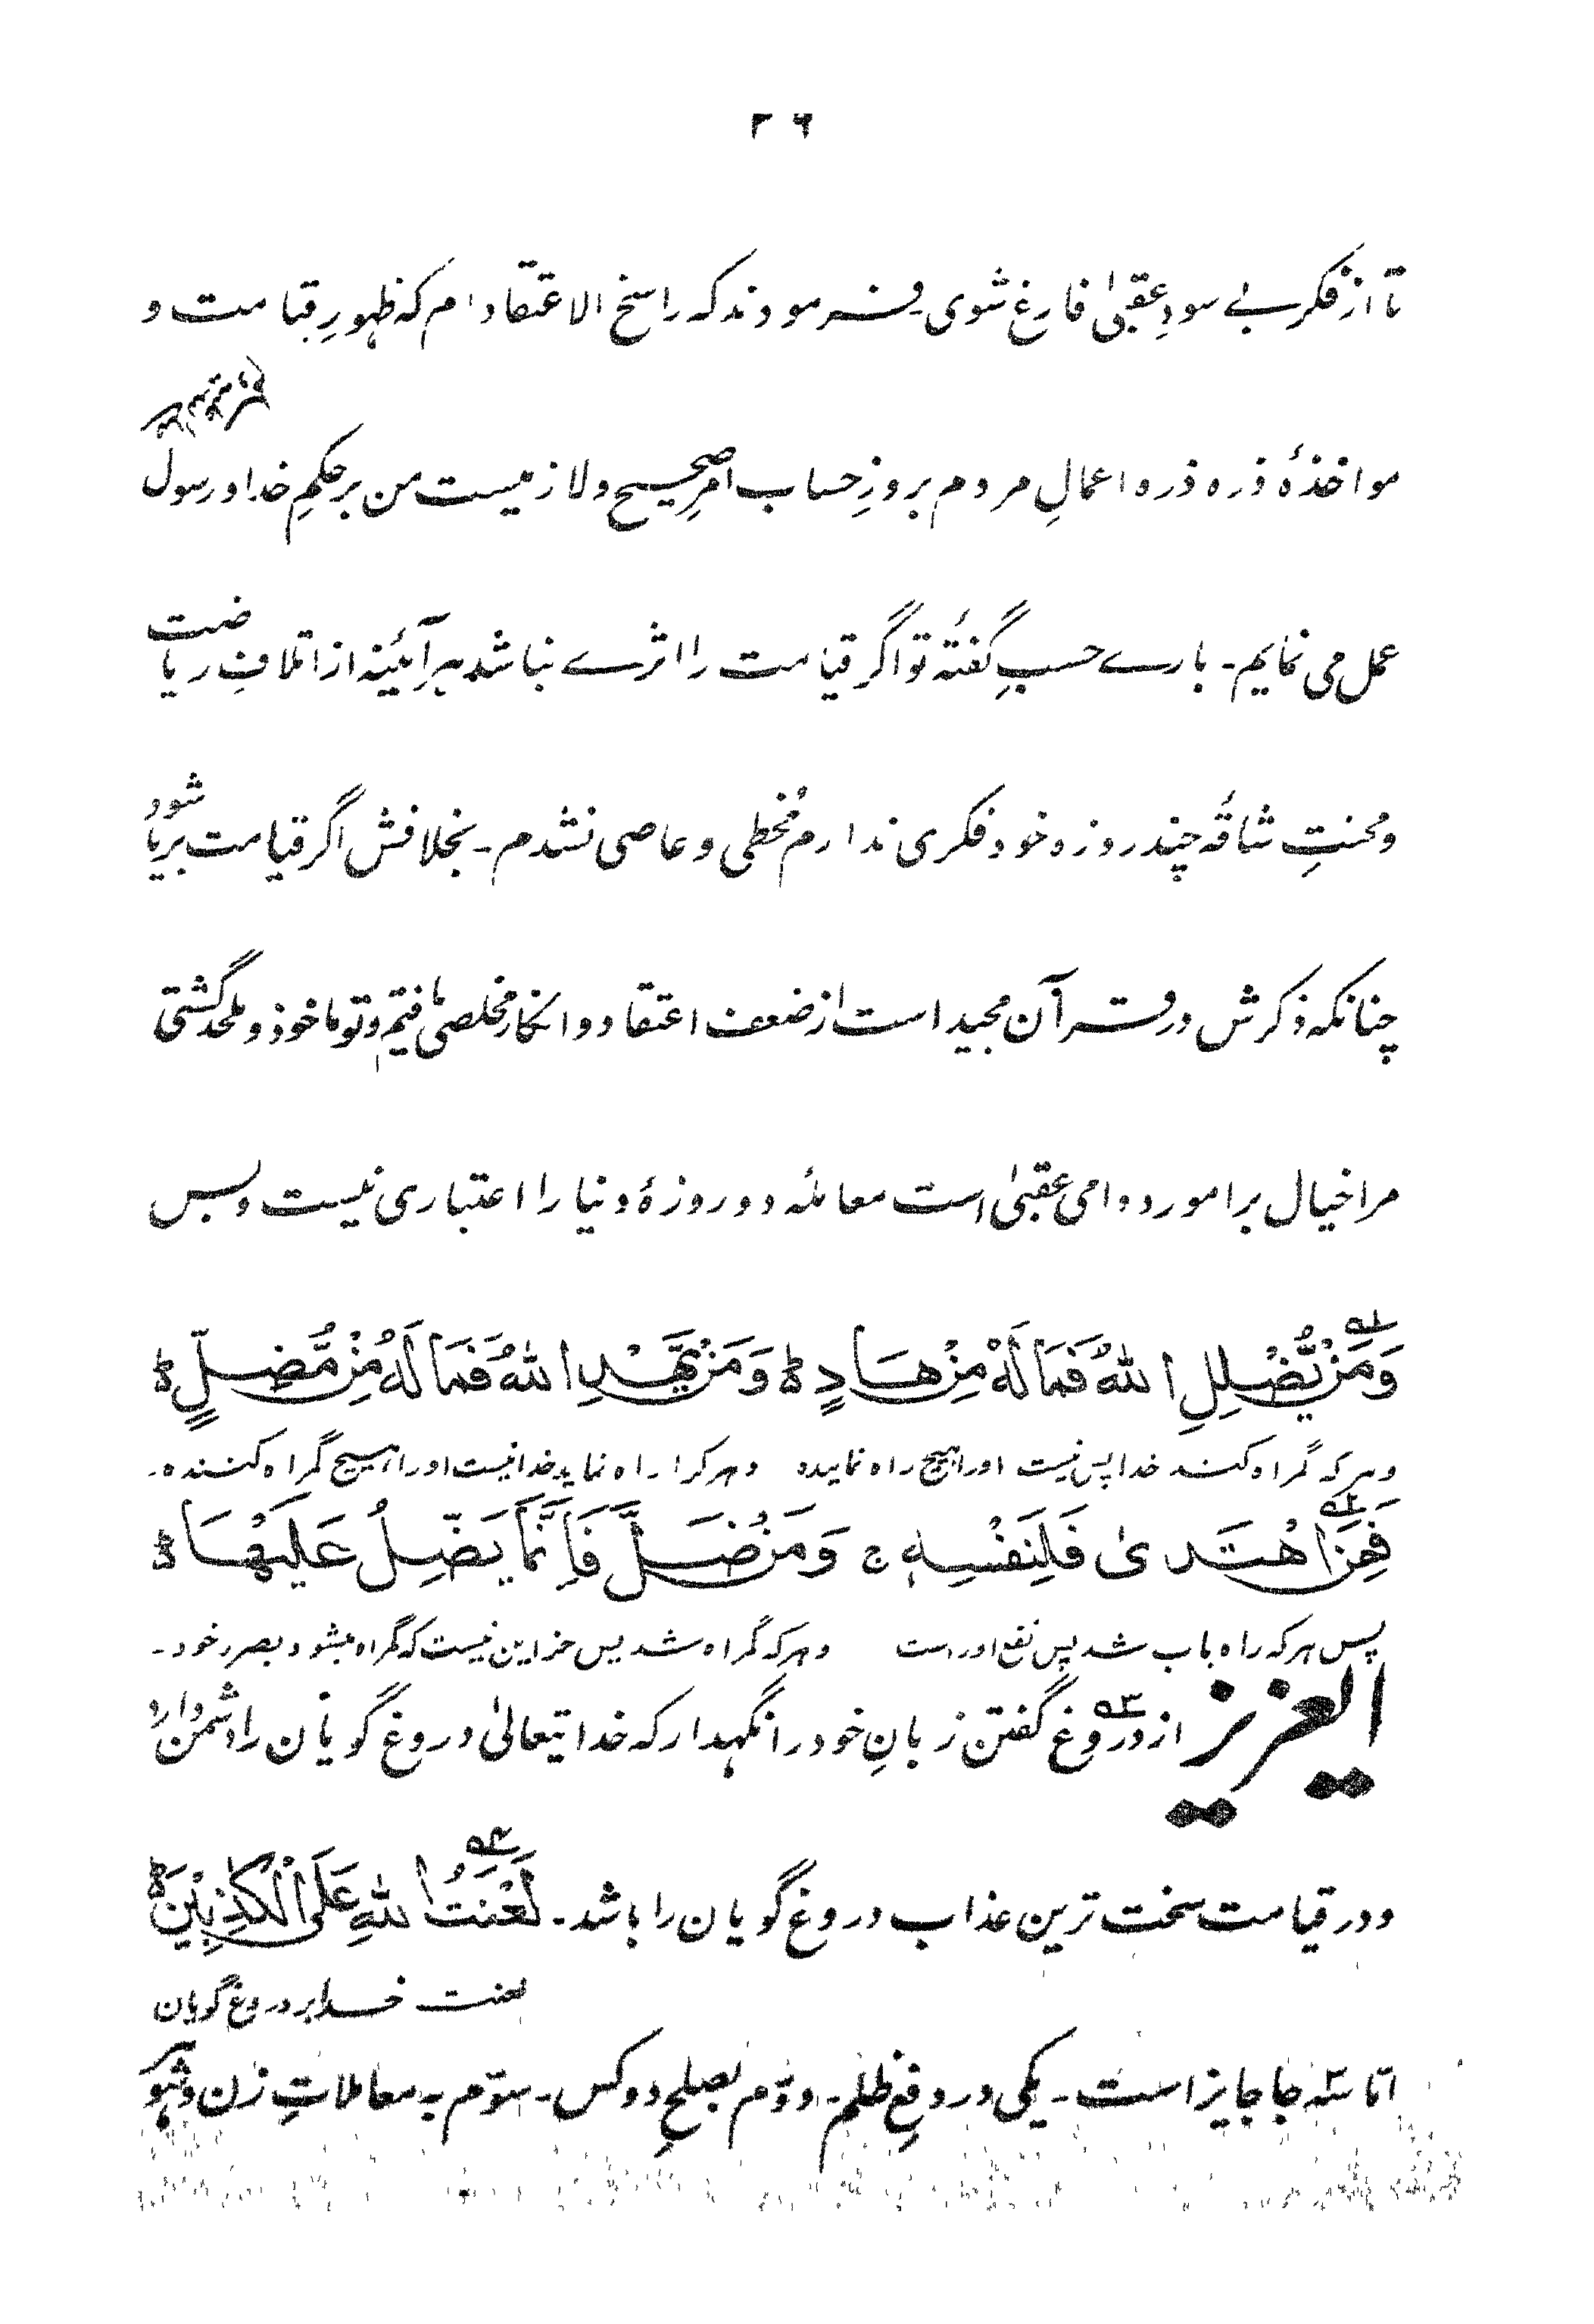 ۲۶
تا از فکر بے سودِ عقبیٰ فارغ شوی۔ فرمودند که راسخ الاعتقاد ام که ظہورِ قیامت و
مواخذۂ ذره ذره اعمالِ مردم بروزِ حساب امرِ صحیح و لازمیست من بر حکمِ خدا و رسول
عمل می نمایم۔ بارے حسبِ گفتۂ تو اگر قیامت را اثرے نباشد ہر آئینه از اتلافِ ریاضت
و محنتِ شاقّه چند روزه خود فکری ندارم مُخطی و عاصی نشدم۔ بخلافش اگر قیامت برپا شود
چنانکه ذکرش در قرآن مجید است از ضعف اعتقاد و انکار مخلصی یافتیم و تو ماخوذ و ملحد گشتی
مرا خیال بر امور دوامی عقبیٰ است معاملۂ دو روزۂ دنیا را اعتباری نیست و بس
وَمَنْ يُّضْلِلِ اللهُ فَمَالَهٗ مِنْ هَادٍ ؕ وَمَنْ يَّهْدِ اللهُ فَمَالَهٗ مِنْ مُّضِلٍّ ؕ
و ہر که گمراه کند خدا پس نیست اورا ہیچ راه نماینده و ہر کرا راه نماید خدا نیست اورا ہیچ گمراه کننده۔
فَمَنِ اهْتَدىٰ فَلِنَفْسِهٖ ج وَمَنْ ضَلَّ فَاِنَّمَا يَضِلُّ عَلَيْهَا ؕ
پس ہر که راه یاب شد پس نفع اوراست و ہر که گمراه شد پس جز این نیست که گمراه میشود بضرر خود۔
العزیز از دروغ گفتن زبانِ خود را نگہدار که خدا یتعالیٰ دروغ گویان را دشمن دارد
و در قیامت سخت ترین عذاب دروغ گویان را باشد۔ لَعْنَتُ اللهِ عَلَى الْكٰذِبِيْنَ ؕ
لعنت خدا بر دروغ گویان
امّا سّه جا جایز است۔ یکی در دفعِ ظلم۔ دوّم بصلحِ دو کس۔ سوّم به معاملاتِ زن و شوہر